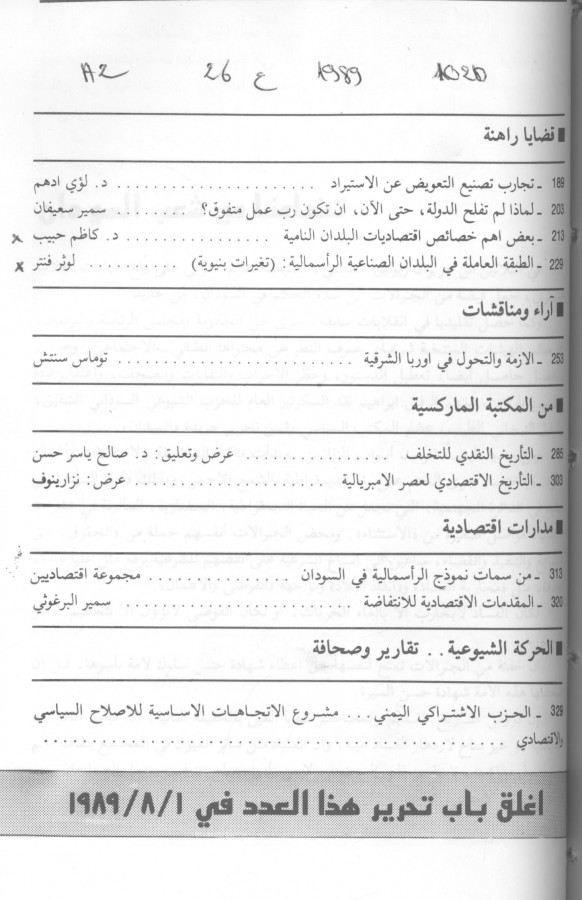 A2 26 ع 1989 1020
قضايا راهنة
189 ـ تجارب تصنيع التعويض عن الاستيراد . . . . . . . . . . . . . . . . . . د. لؤي ادهم
203 ـ لماذا لم تفلح الدولة، حتى الآن، ان تكون رب عمل متفوق؟ . . . . . . . . سمير سعيفان
213 ـ بعض اهم خصائص اقتصاديات البلدان النامية . . . . . . . . . . . . . د. كاظم حبيب x
229 ـ الطبقة العاملة في البلدان الصناعية الرأسمالية: (تغيرات بنيوية) . . . . . . . . لوثر فنتر x
آراء ومناقشات
253 ـ الازمة والتحول في اوربا الشرقية . . . . . . . . . . . . . . . . . . . . . . . توماس سنتش
من المكتبة الماركسية
285 ـ التأريخ النقدي للتخلف . . . . . . . . . . عرض وتعليق: د. صالح ياسر حسن
303 ـ التأريخ الاقتصادي لعصر الامبريالية . . . . . . . . . . . . . . . . عرض: نزارينوف
مدارات اقتصادية
313 ـ من سمات نموذج الرأسمالية في السودان . . . . . . . . . . . . مجموعة اقتصاديين
320 ـ المقدمات الاقتصادية للانتفاضة . . . . . . . . . . . . . . . . . . . . . سمير البرغوثي
الحركة الشيوعية . . تقارير وصحافة
329 ـ الحزب الاشتراكي اليمني . . . مشروع الاتجاهات الاساسية للاصلاح السياسي
والاقتصادي . . . . . . . . . . . . . . . . . . . . . . . . . . . . . . . . . . . . . . . . . .
اغلق باب تحرير هذا العدد في ١/٨/١٩٨٩